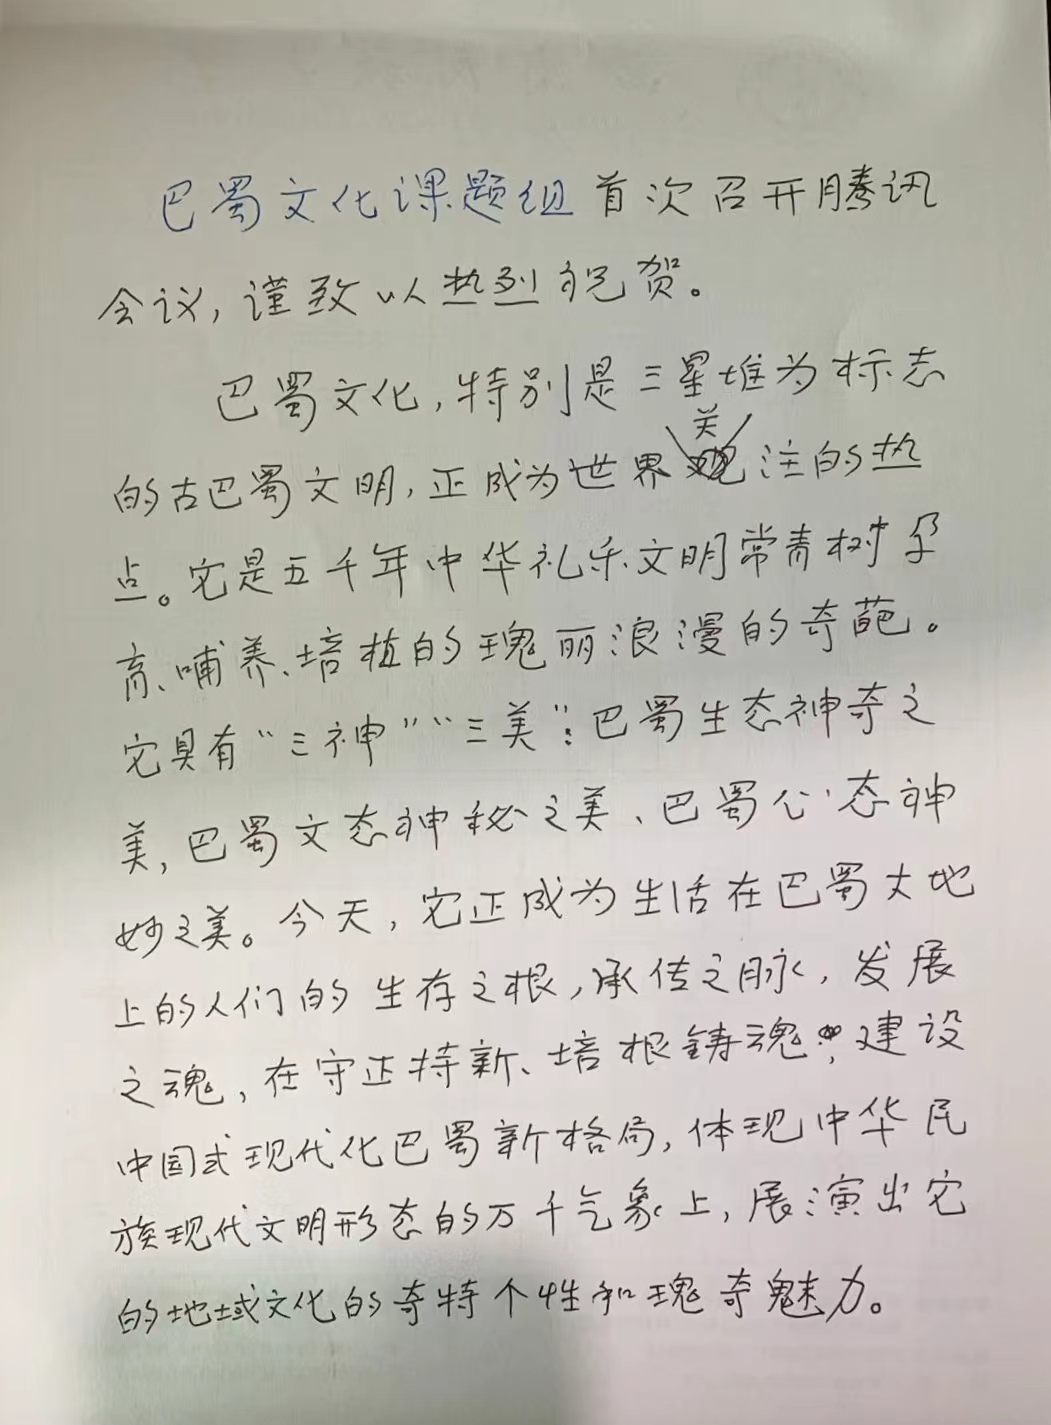 巴蜀文化课题组首次召开腾讯
会议，谨致以热烈祝贺。
巴蜀文化，特别是三星堆为标志
的古巴蜀文明，正成为世界关注的热
点。它是五千年中华礼乐文明常青树孕
育、哺养、培植的瑰丽浪漫的奇葩。
它具有“三神”“三美”：巴蜀生态神奇之
美，巴蜀文态神秘之美、巴蜀心态神
妙之美。今天，它正成为生活在巴蜀大地
上的人们的生存之根，承传之脉，发展
之魂，在守正持新、培根铸魂，建设
中国式现代化巴蜀新格局，体现中华民
族现代文明形态的万千气象上，展演出它
的地域文化的奇特个性和瑰奇魅力。